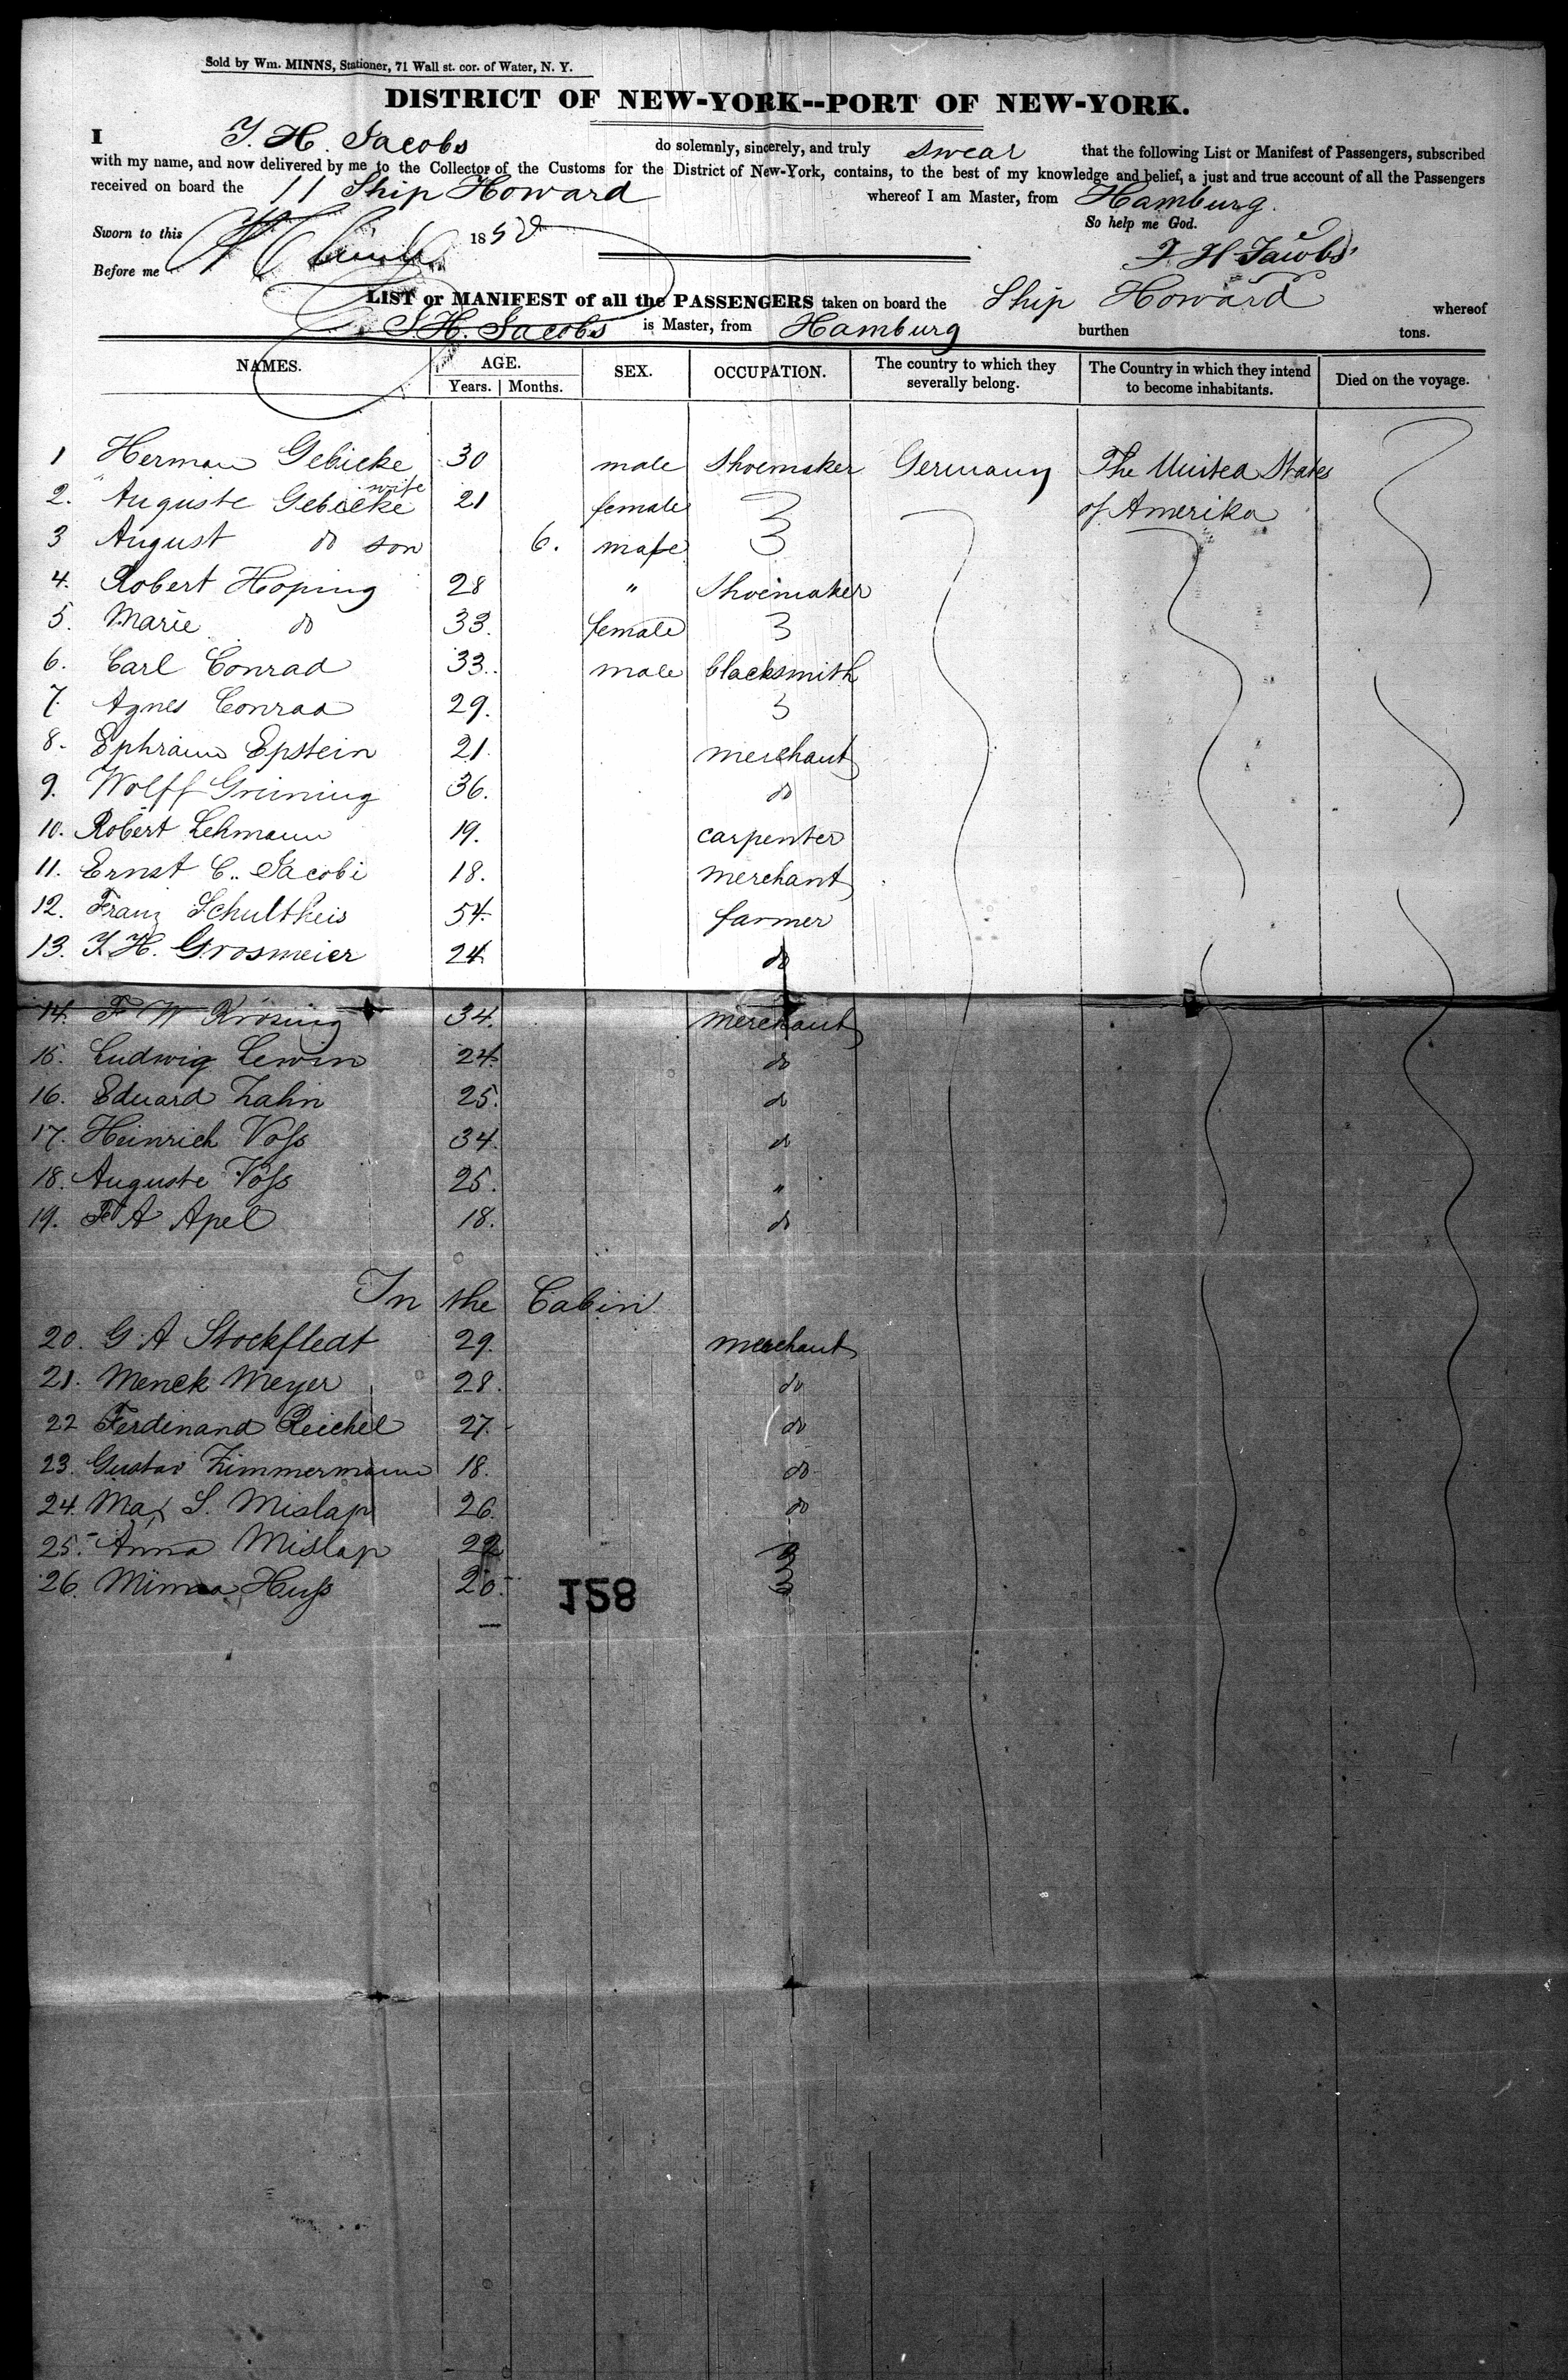 Sold by Wm. MINNS, Stationer, 71 Wall st. cor. of Water, N. Y.
DISTRICT OF NEW-YORK--PORT OF NEW-YORK.
I J. H. Jacobs do solemnly, sincerely, and truly swear that the following List or Manifest of Passengers, subscribed
with my name, and now delivered by me to the Collector of the Customs for the District of New-York, contains, to the best of my knowledge and belief, a just and true account of all the Passengers
received on board the Ship Howard whereof I am Master, from Hamburg.
So help me God.
Sworn to this 1850
J H Jacobs
Before me
LIST or MANIFEST of all the PASSENGERS taken on board the Ship Howard whereof
J. H. Jacobs is Master, from Hamburg burthen tons.
NAMES. AGE. Years. Months. SEX. OCCUPATION. The country to which they severally belong. The Country in which they intend to become inhabitants. Died on the voyage.
1 Herman Gebicke 30 male Shoemaker Germany The United States
2. Auguste Gebicke wife 21 female of Amerika
3 August do son 6. male
4. Robert Hoping 28 " Shoemaker
5. Marie do 33. female
6. Carl Conrad 33. male blacksmith
7. Agnes Conrad 29.
8. Ephraim Epstein 21. merchant
9. Wolff Gruning 36. do
10. Robert Lehmann 19. carpenter
11. Ernst C. Jacobi 18. merchant
12. Franz Schultheis 54. farmer
13. J. H. Grosmeier 24 do
14. F W Krösing 34. merchant
15. Ludwig Lewin 24. do
16. Eduard Zahn 25. do
17. Heinrich Voss 34. do
18. Auguste Voss 25. "
19. F A Apel 18. do
In the Cabin
20. G A Stockfledt 29. merchant
21. Menck Meyer 28. do
22 Ferdinand Reichel 27. do
23. Gustav Zimmermann 18. do
24. Max S. Mislap 26. do
25. Anna Mislap 22
26. Minna Huss 20.
128